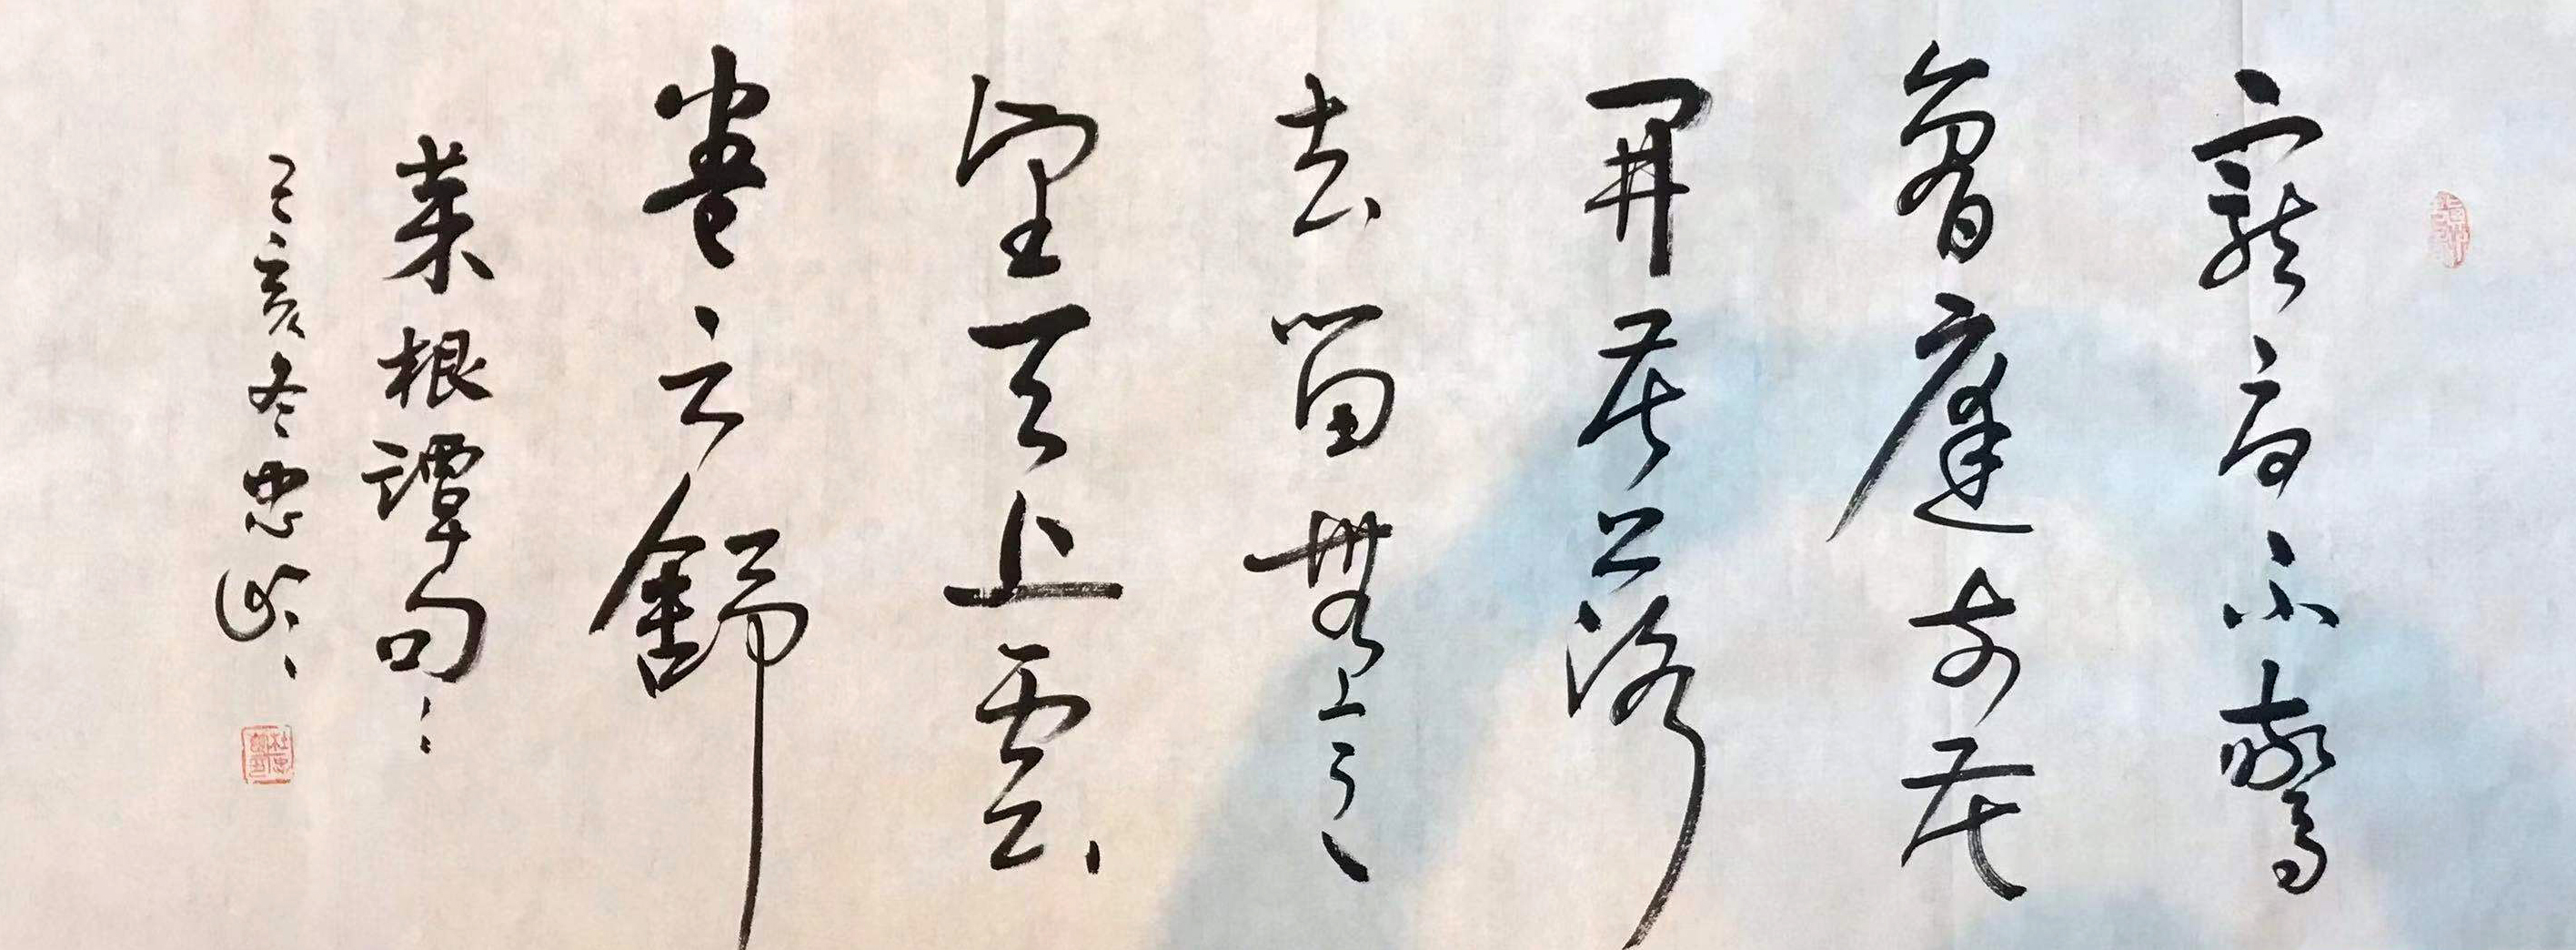 寵辱不驚
看庭前花
開花與落
去留無意
望天上雲
卷雲舒
菜根譚句
己亥冬忠